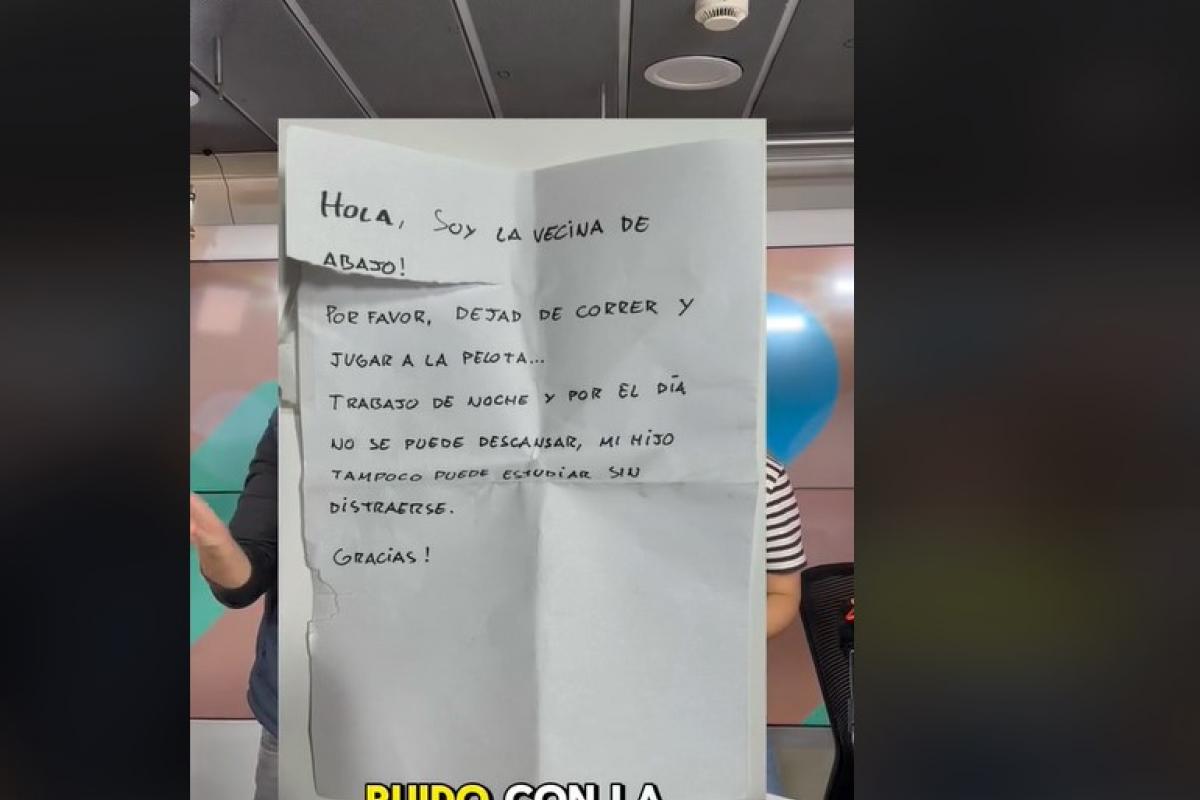 HOLA, SOY LA VECINA DE
ABAJO!
POR FAVOR, DEJAD DE CORRER Y
JUGAR A LA PELOTA...
TRABAJO DE NOCHE Y POR EL DÍA
NO SE PUEDE DESCANSAR, MI HIJO
TAMPOCO PUEDE ESTUDIAR SIN
DISTRAERSE.
GRACIAS!
RUIDO CON LA